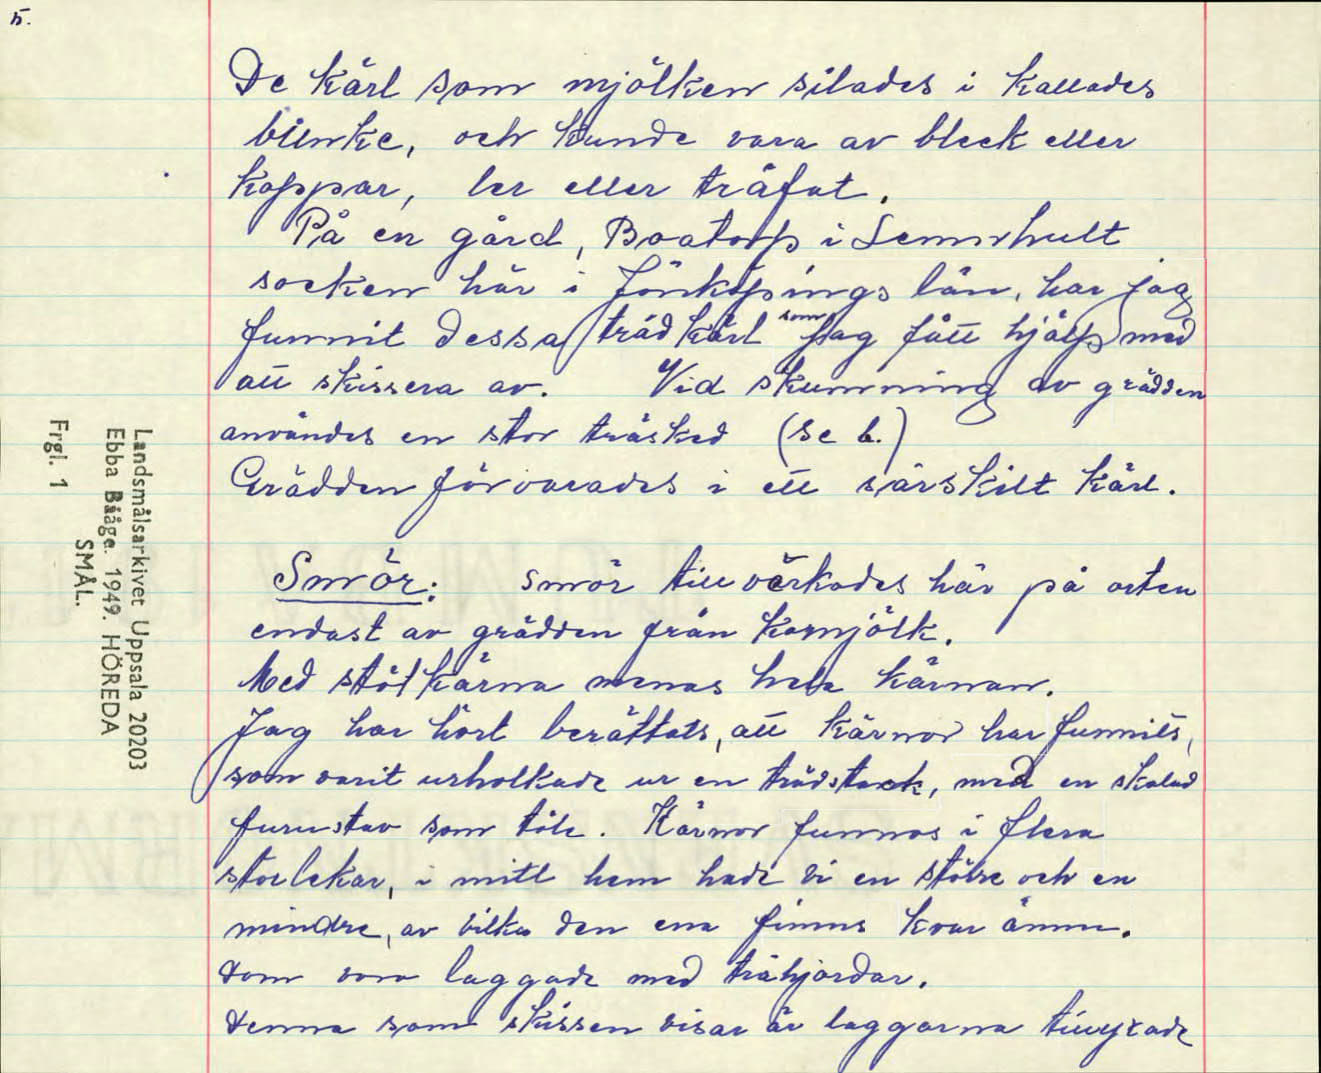 5.
De kärl som mjölken silades i kallades
bunke, och kunde vara av bleck eller
koppar, ler eller träfat.
På en gård, Boatorp i Lemnhult
socken här i Jönköpings län, har jag
funnit dessa trädkärl som jag fått hjälp med
att skissera av. Vid skumning av grädden
användes en stor träsked (se b.)
Grädden förvarades i ett särskilt kärl.
Smör: smör tillvärkades här på orten
endast av grädden från komjölk.
Med stötkärna menas hela kärnan.
Jag har hört berättats, att kärnor har funnits,
som varit urholkade ur en trädstock, med en skalad
furustav som töle. Kärnor funnos i flera
storlekar, i mitt hem hade vi en större och en
mindre, av vilka den ena finns kvar ännu.
som voro laggade med trähjordar.
denna som skissen visar är laggarna tillyxade
Landsmålsarkivet Uppsala 20203
Ebba Bååge. 1949. HÖREDA
SMÅL.
Frgl. 1